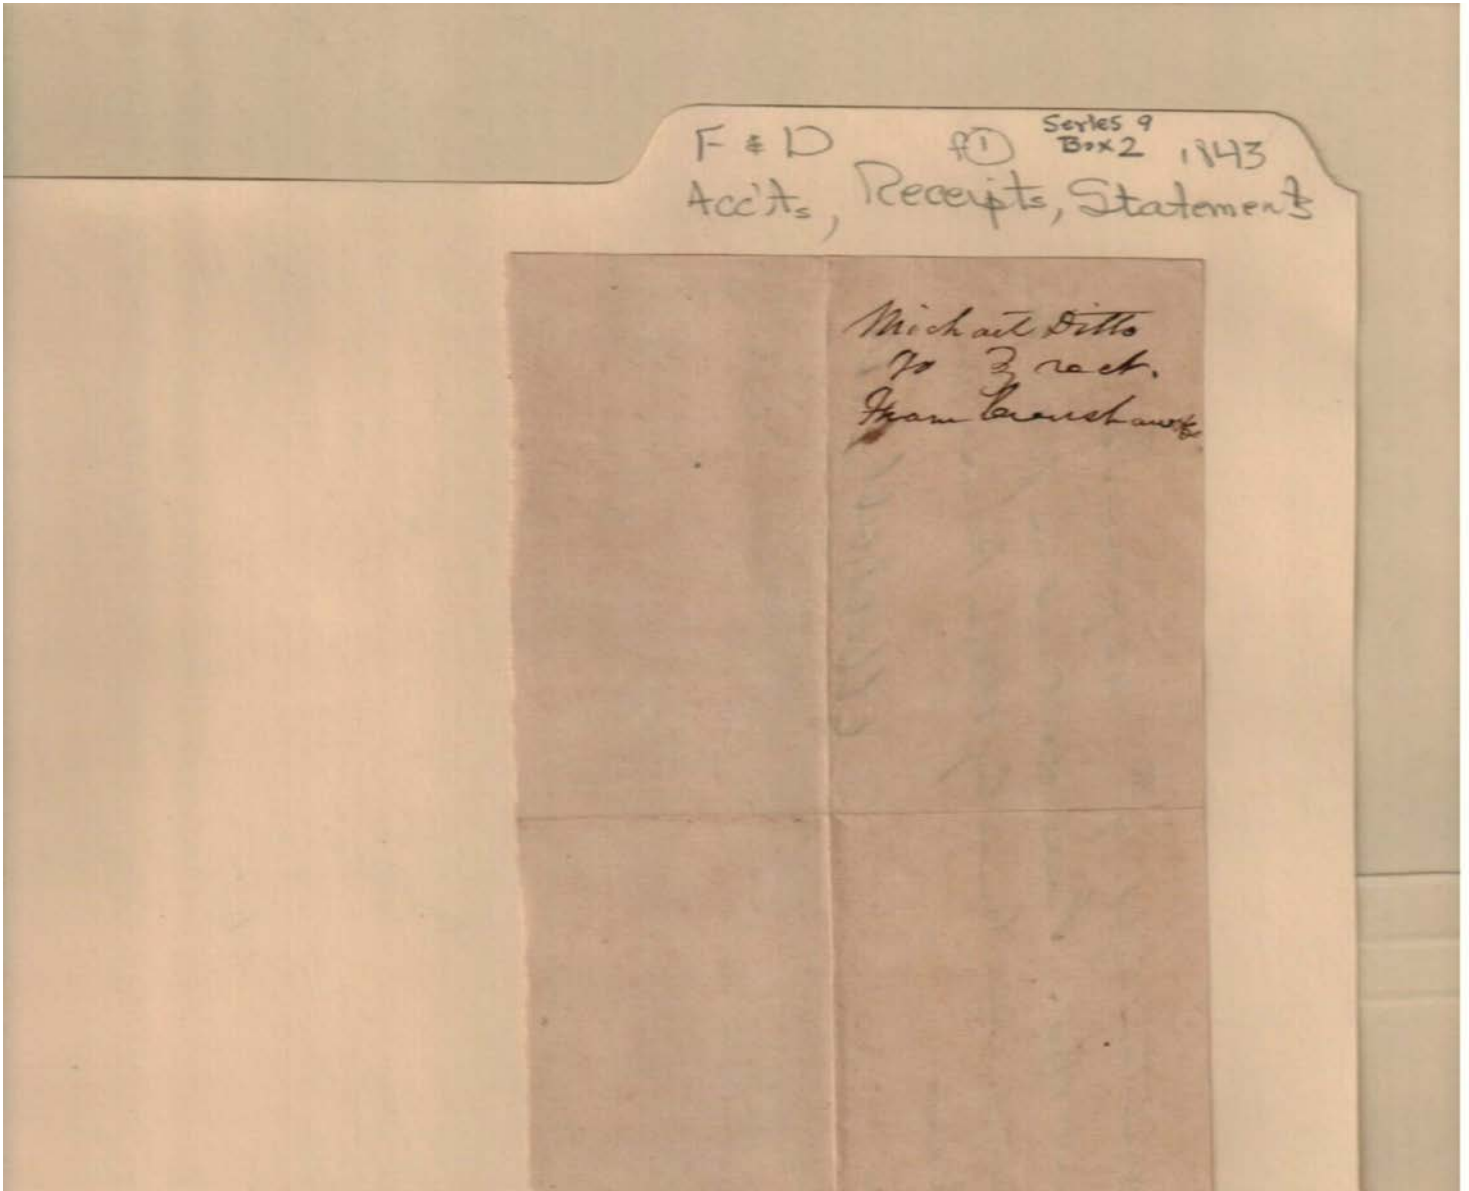 F & D f① Series 9 Box 2 1843
Acc'ts, Receipts, Statements
Michael Ditto
To 3 rect.
From Crenshaw